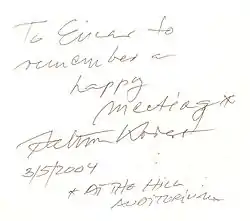 To Einar to
remember a
happy
meeting*
3/5/2004
* AT THE HILL
AUDITORIUM